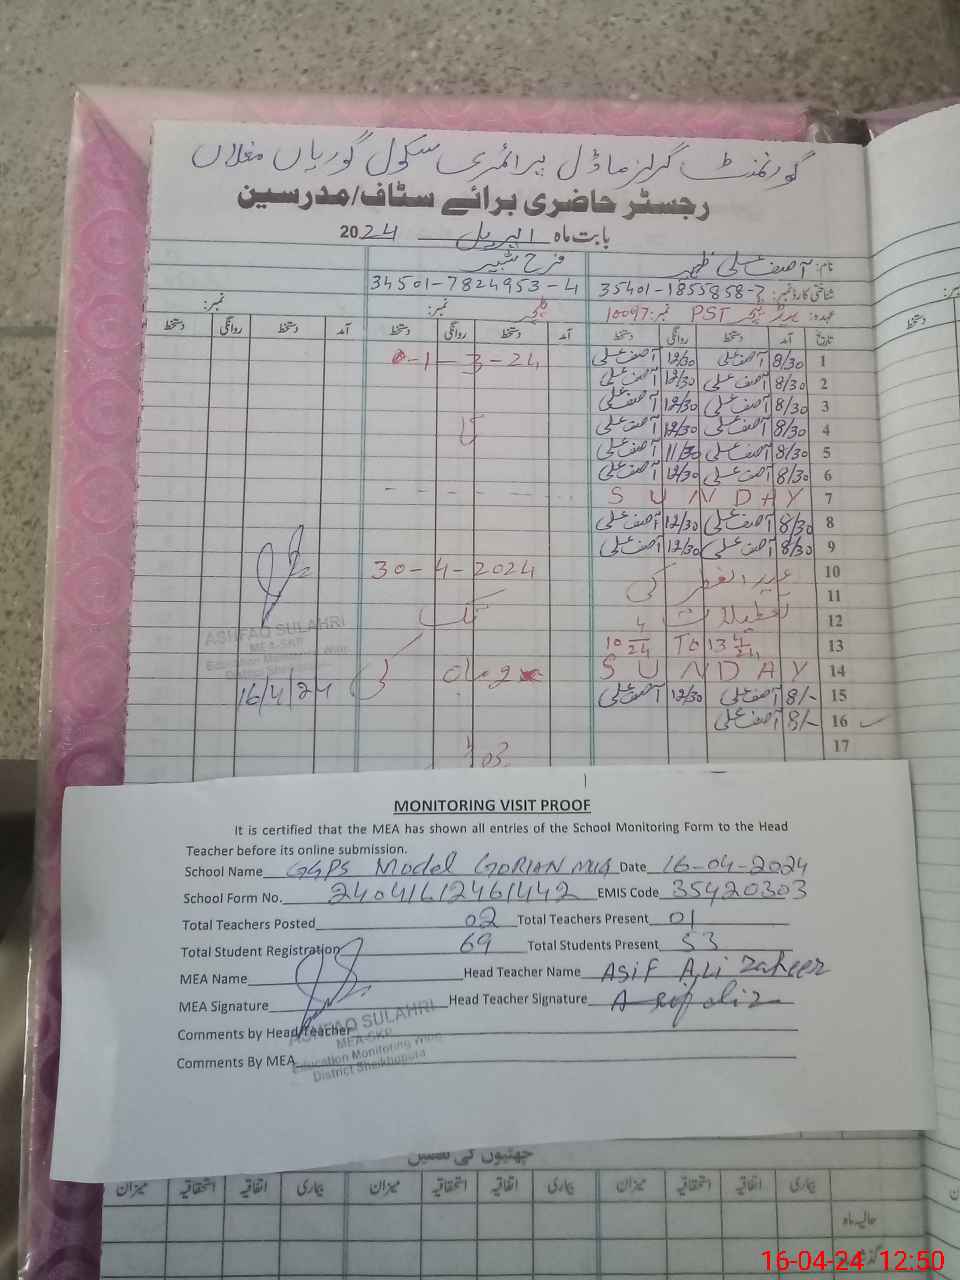 گورنمنٹ گرلز ماڈل پرائمری سکول گوریاں مغلاں
رجسٹر حاضری برائے سٹاف/مدرسین
بابت ماہ اپریل 2024
نام: آصف علی ظہیر فرح شبیر
شناختی کارڈ نمبر: 35401-1855858-7 34501-7824953-4
عہدہ: PST نمبر: 10097 نمبر: نمبر:
تاریخ آمد دستخط روانگی دستخط آمد دستخط روانگی دستخط آمد دستخط روانگی دستخط
1 8/30 آصف علی 12/30 آصف علی 1-3-24
2 8/30 آصف علی 12/30 آصف علی
3 8/30 آصف علی 12/30 آصف علی
4 8/30 آصف علی 12/30 آصف علی
5 8/30 آصف علی 11/30 آصف علی
6 8/30 آصف علی 12/30 آصف علی
7 SUNDAY
8 8/30 آصف علی 12/30 آصف علی
9 8/30 آصف علی 12/30 آصف علی
10 عید الفطر کی 30-4-2024
11
12 تعطیلات تک
13 10 4/24 TO 13 4/24
14 SUNDAY
15 8/- آصف علی 12/30 آصف علی
16 8/- آصف علی
17
ASHFAQ SULAHRI
MEA-SKP
Education Monitoring Wing
District Sheikhupura
16/4/24
MONITORING VISIT PROOF
It is certified that the MEA has shown all entries of the School Monitoring Form to the Head
Teacher before its online submission.
School Name GGPS Model GORIAN MLA Date 16-04-2024
School Form No. 24041612461442 EMIS Code 35420303
Total Teachers Posted 02 Total Teachers Present 01
Total Student Registration 69 Total Students Present 53
MEA Name Head Teacher Name ASIF ALI Zaheer
MEA Signature Head Teacher Signature
Comments by Head Teacher
Comments By MEA
ASHFAQ SULAHRI
MEA-SKP
Education Monitoring Wing
District Sheikhupura
بیماری اتفاقیہ استحقاقیہ میزان بیماری اتفاقیہ استحقاقیہ میزان بیماری اتفاقیہ استحقاقیہ میزان
حالیہ ماہ
16-04-24 12:50